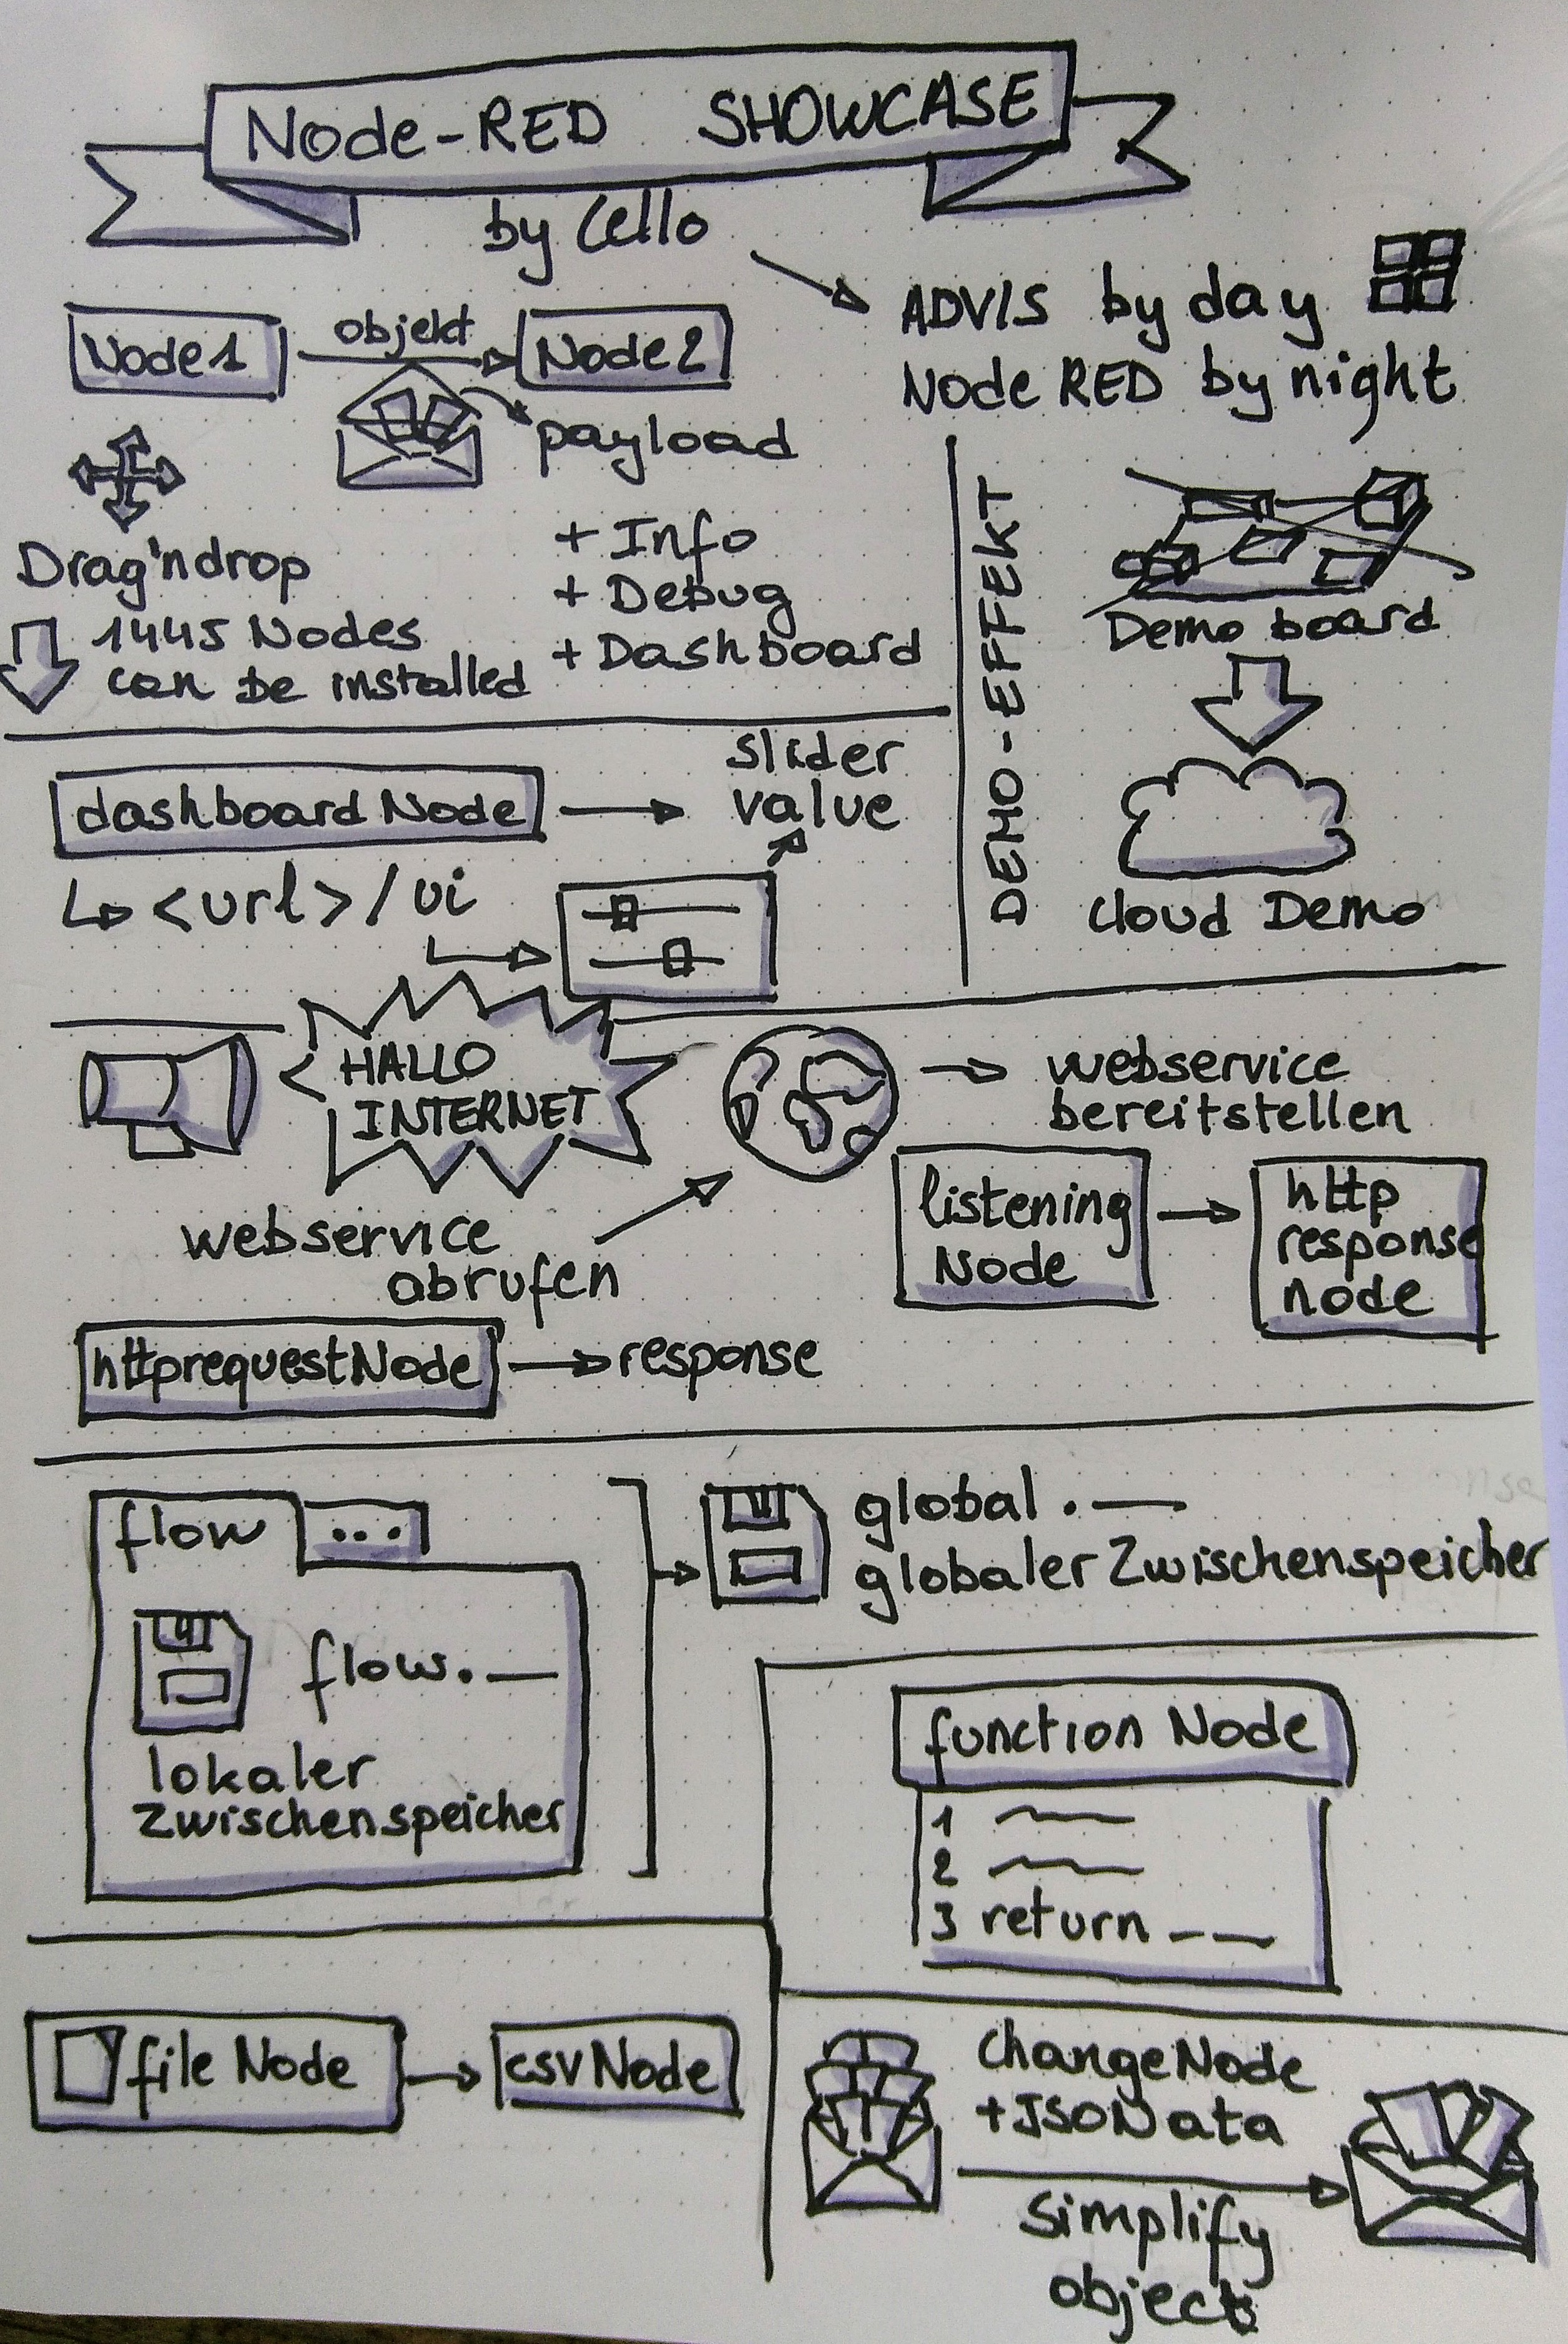 Node-RED SHOWCASE
by Cello
ADVIS by day
Node RED by night
Node1
objekt
Node2
payload
Drag'n drop
1445 Nodes
can be installed
+ Info
+ Debug
+ Dashboard
DEMO-EFFEKT
Demo board
Cloud Demo
dashboard Node
slider
value
<url>/ui
HALLO
INTERNET
webservice
bereitstellen
listening
Node
http
response
node
webservice
abrufen
httprequestNode
response
flow
...
flow.__
lokaler
Zwischenspeicher
global.__
globaler Zwischenspeicher
function Node
1
2
3 return __
file Node
csvNode
changeNode
+JSONata
Simplify
object